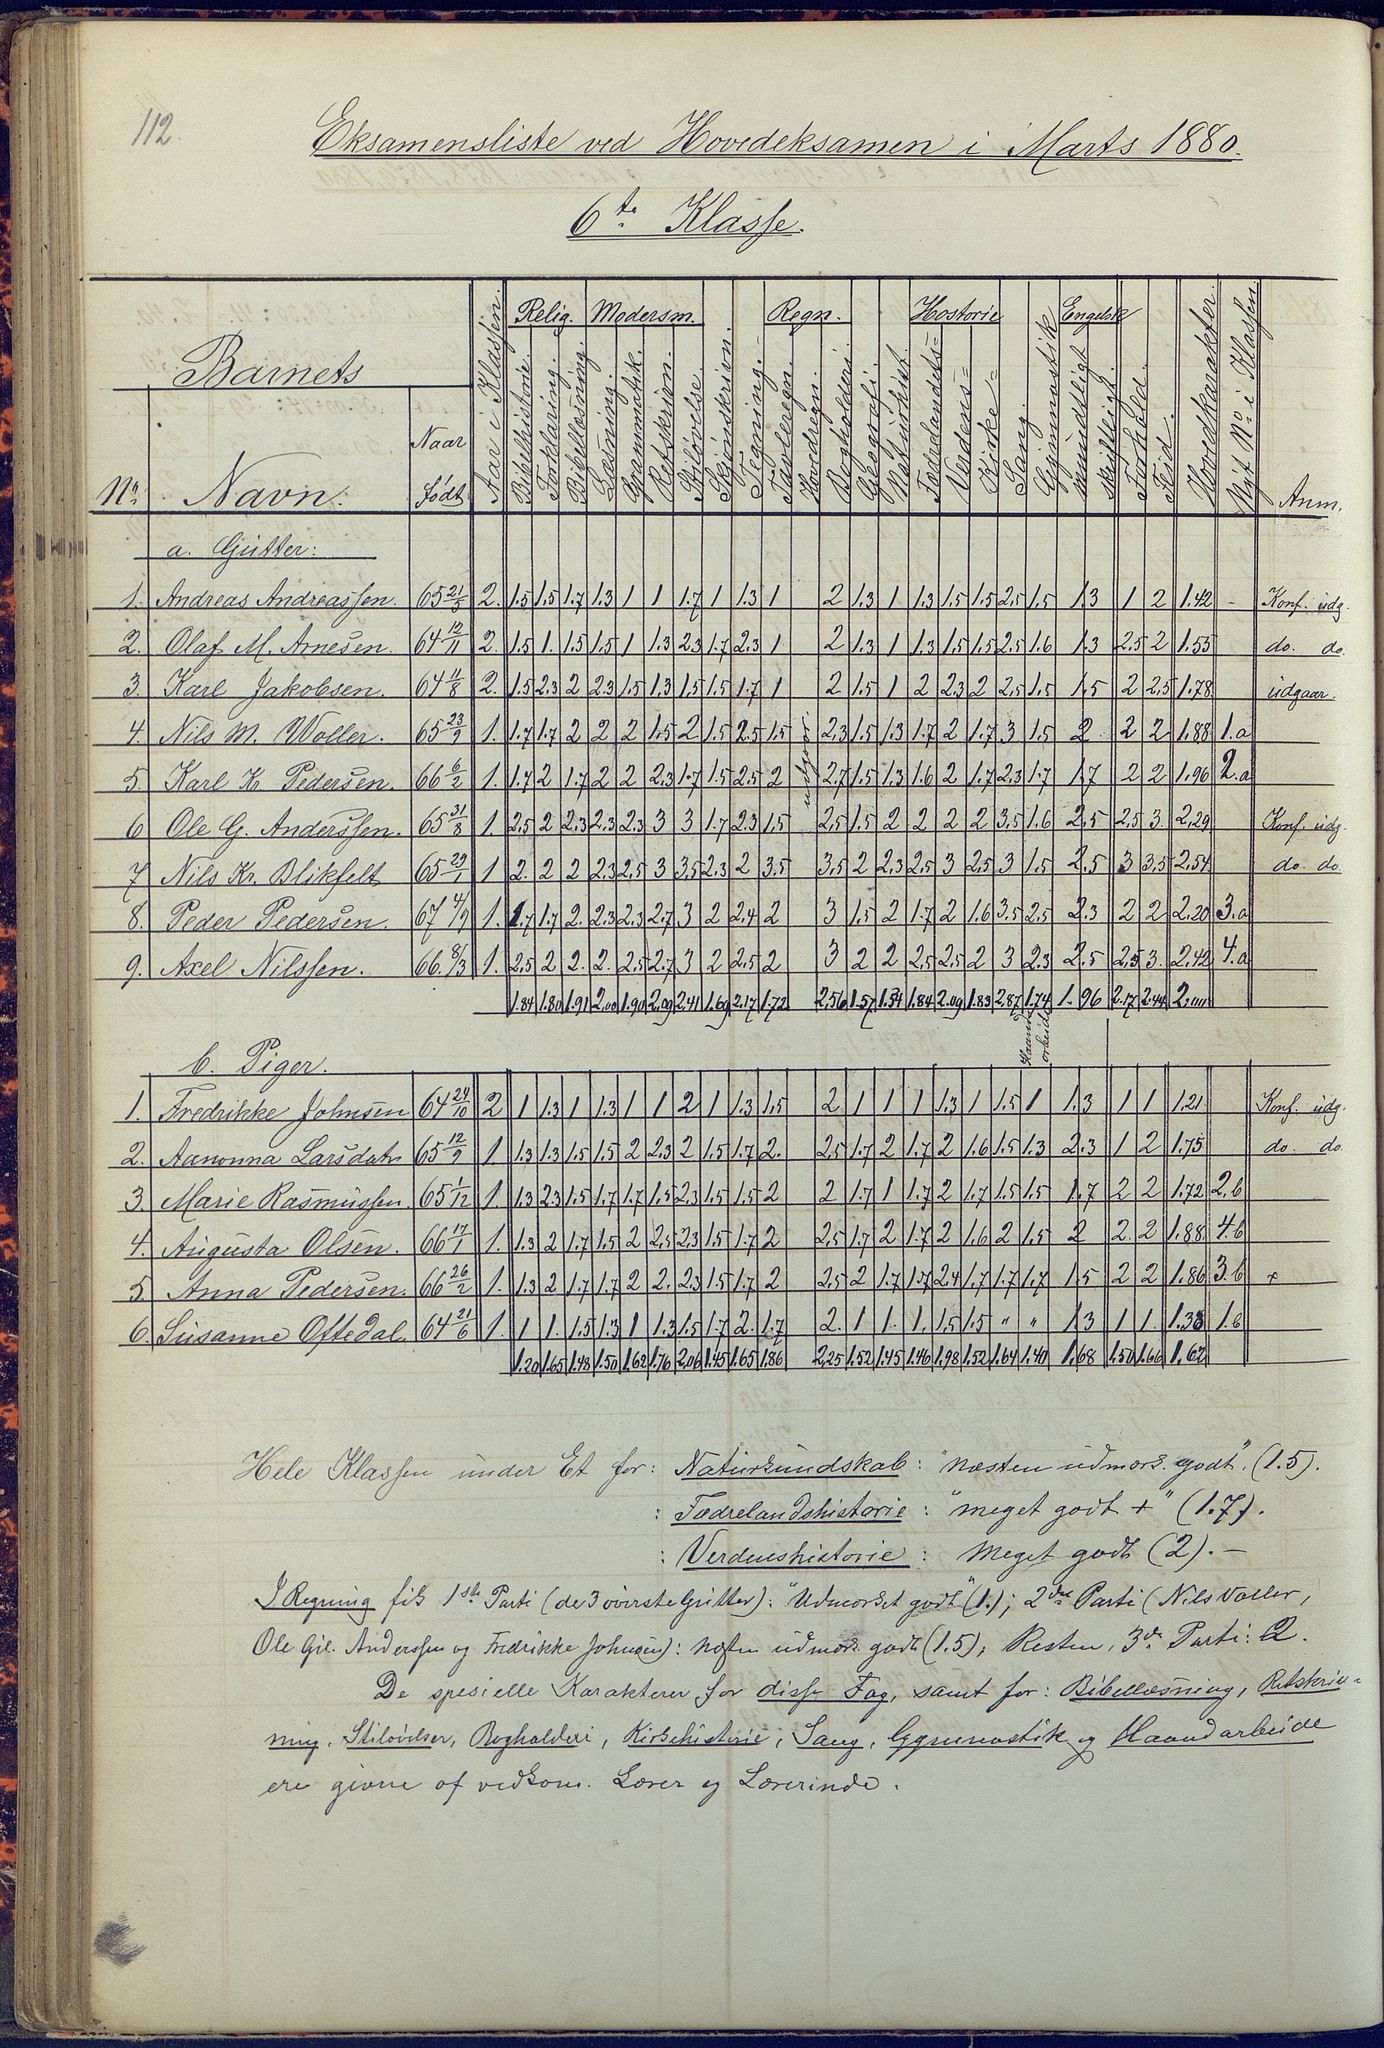 112.
Eksamensliste ved Hovedeksamen i Marts 1880.
6te Klasse.
Barnets
No. Navn. Naar Født Aar i Klassen. Relig. Bibelhistorie. Forklaring. Bibellæsning. Modersm. Læsning. Grammatik. Retskrivn. Stiløvelse. Skjönskrivn. Tegning. Regn. Tavleregn. Hovedregn. Bogholderi. Geografi. Naturhist. Hostorie Fædrelandets= Verdens= Kirke= Sang. Gymnastik Engelsk mundtligt skriftligt. Forhold. Flid. Hovedkarakter. Nyt No i Klassen. Anm.
a. Gutter:
1. Andreas Andreassen. 65 21/5 2. 1.5 1.5 1.7 1.3 1 1 1.7 1 1.3 1 2 1.3 1 1.3 1.5 1.5 2.5 1.5 1.3 1 2 1.42 - Konf. udg.
2. Olaf M. Arnesen. 64 12/11 2. 1.5 1. 1.5 1.5 1 1.3 2.3 1.7 2.3 1 2 1.3 1 1.3 1.5 1.5 2.5 1.6 1.3 2.5 2 1.55 do. do.
3. Karl Jakobsen. 64 11/8 2. 1.5 2.3 2 2.3 1.5 1.3 1.5 1.5 1.7 1 2 1.5 1 2 2.3 2 2.5 1.5 1.5 2 2.5 1.78 udgaar.
4. Nils M. Woller. 65 23/9 1. 1.7 1.7 2 2 2 1.5 2 1.5 2.5 1.5 2.3 1.5 1.3 1.7 2 1.7 3 1.5 2 2 2 1.88 1.a
5. Karl Kr. Pedersen. 66 6/2 1. 1.7 2 1.7 2 2 2.3 1.7 1.5 2.5 2 2.7 1.5 1.3 1.6 2 1.7 2.3 1.7 1.7 2 2 1.90 2.a
6 Ole G. Anderssen. 65 31/8 1. 2.5 2 2.3 2.3 2.3 3 3 1.7 2.3 1.5 2.5 1.5 2 2 2 2 3.5 1.6 2.5 2.5 3. 2.29 Konf. udg.
7 Nils Kr. Blikfelt 65 29/1 1 2. 2 2 2.3 2.5 3 3.5 2.3 2 3.5 3.5 2 2.3 2.5 3 2.5 3 1.5 2.5 3 3.5 2.54 do. do.
8. Peder Pedersen. 67 4/9 1. 1.7 1.7 2. 2.3 2.3 2.7 3 2 2.4 2 3 1.5 2 1.7 2 1.6 3.5 2.5 2.3 2 2 2.20 3.a
9. Axel Nilssen. 66. 8/3 1. 2.5 2 2. 2. 2.5 2.7 3 2 2.5 2 3 2 2 2.5 2.5 2 3 2.3 2.5 2.5 3. 2.42 4.a
1.84 1.80 1.91 2.00 1.90 2.09 2.41 1.69 2.17 1.72 2.56 1.57 1.54 1.84 2.09 1.83 2.87 1.74 1.96 2.17 2.44
b. Piger.
Haandarbeide
1. Fredrikke Johnsen 64 24/10 2 1 1.3 1 1.3 1 1 2 1 1.3 1.5 2 1 1 1 1.3 1 1.5 1 1.3 1 1 1.21 Konf. udg.
2. Aanonna Larsdatr 65 12/9 1. 1.3 1.3 1.5 1.5 2 2.3 2 1.5 1.7 2. 2.5 1.7 2 1.7 2 1.6 1.5 1.3 2.3 1 2 1.75 do. do
3. Marie Rasmussen. 65 1/12 1. 1.3 2.3 1.5 1.7 1.7 1.5 2.3 1.5 1.5 2 2 1.7 1 1.7 2 1.7 1.5 1.5 1.7 2 2 1.72 2.b
4. Augusta Olsen. 66 17/1 1. 1.3 2 1.7 1.5 2 2.5 2.3 1.5 1.7 2 2.5 1.7 2 1.7 2 1.6 2 1.5 2 2. 2 1.88 4.b
5. Anna Pedersen. 66 26/2 1. 1.3 2 1.7 1.7 2 2. 2.3 1.5 1.7 2 2.5 2 1.7 1.7 2.4 1.7 1.7 1.7 1.5 2 2 1.86 3.b +
6. Susanne Oftedal. 64 21/6 1. 1 1. 1.5 1.3 1 1.3 1.5 1.7 2. 1.7 2. 1 1. 1. 1.5 1.5 " " 1.3 1 1. 1.33 1.b
1.20 1.65 1.48 1.50 1.62 1.76 2.06 1.45 1.65 1.86 2.25 1.52 1.45 1.46 1.98 1.52 1.64 1.40 1.68 1.50 1.66 1.62
Hele Klassen under Et for: Naturkundskab: "næsten udmærk. godt". (1.5).
: Fædrelandshistorie: "meget godt +" (1.7).
: Verdenshistorie: Meget godt (2). —
I Regning fik 1ste Parti (de 3 øverste Gutter): "Udmærket godt" (1.); 2det Parti (Nils Woller,
Ole Gil. Anderssen og Fredrikke Johnsen): næsten udmærk. godt (1.5); Resten, 3de Parti: 2.
De spesielle Karakterer for disse Fag, samt for: Bibellæsning, Retskriv-
ning, Stiløvelser, Bogholderi, Kirkehistorie, Sang, Gymnastik og Haandarbeide
ere givne af vedkom. Lærer og Lærerinde.